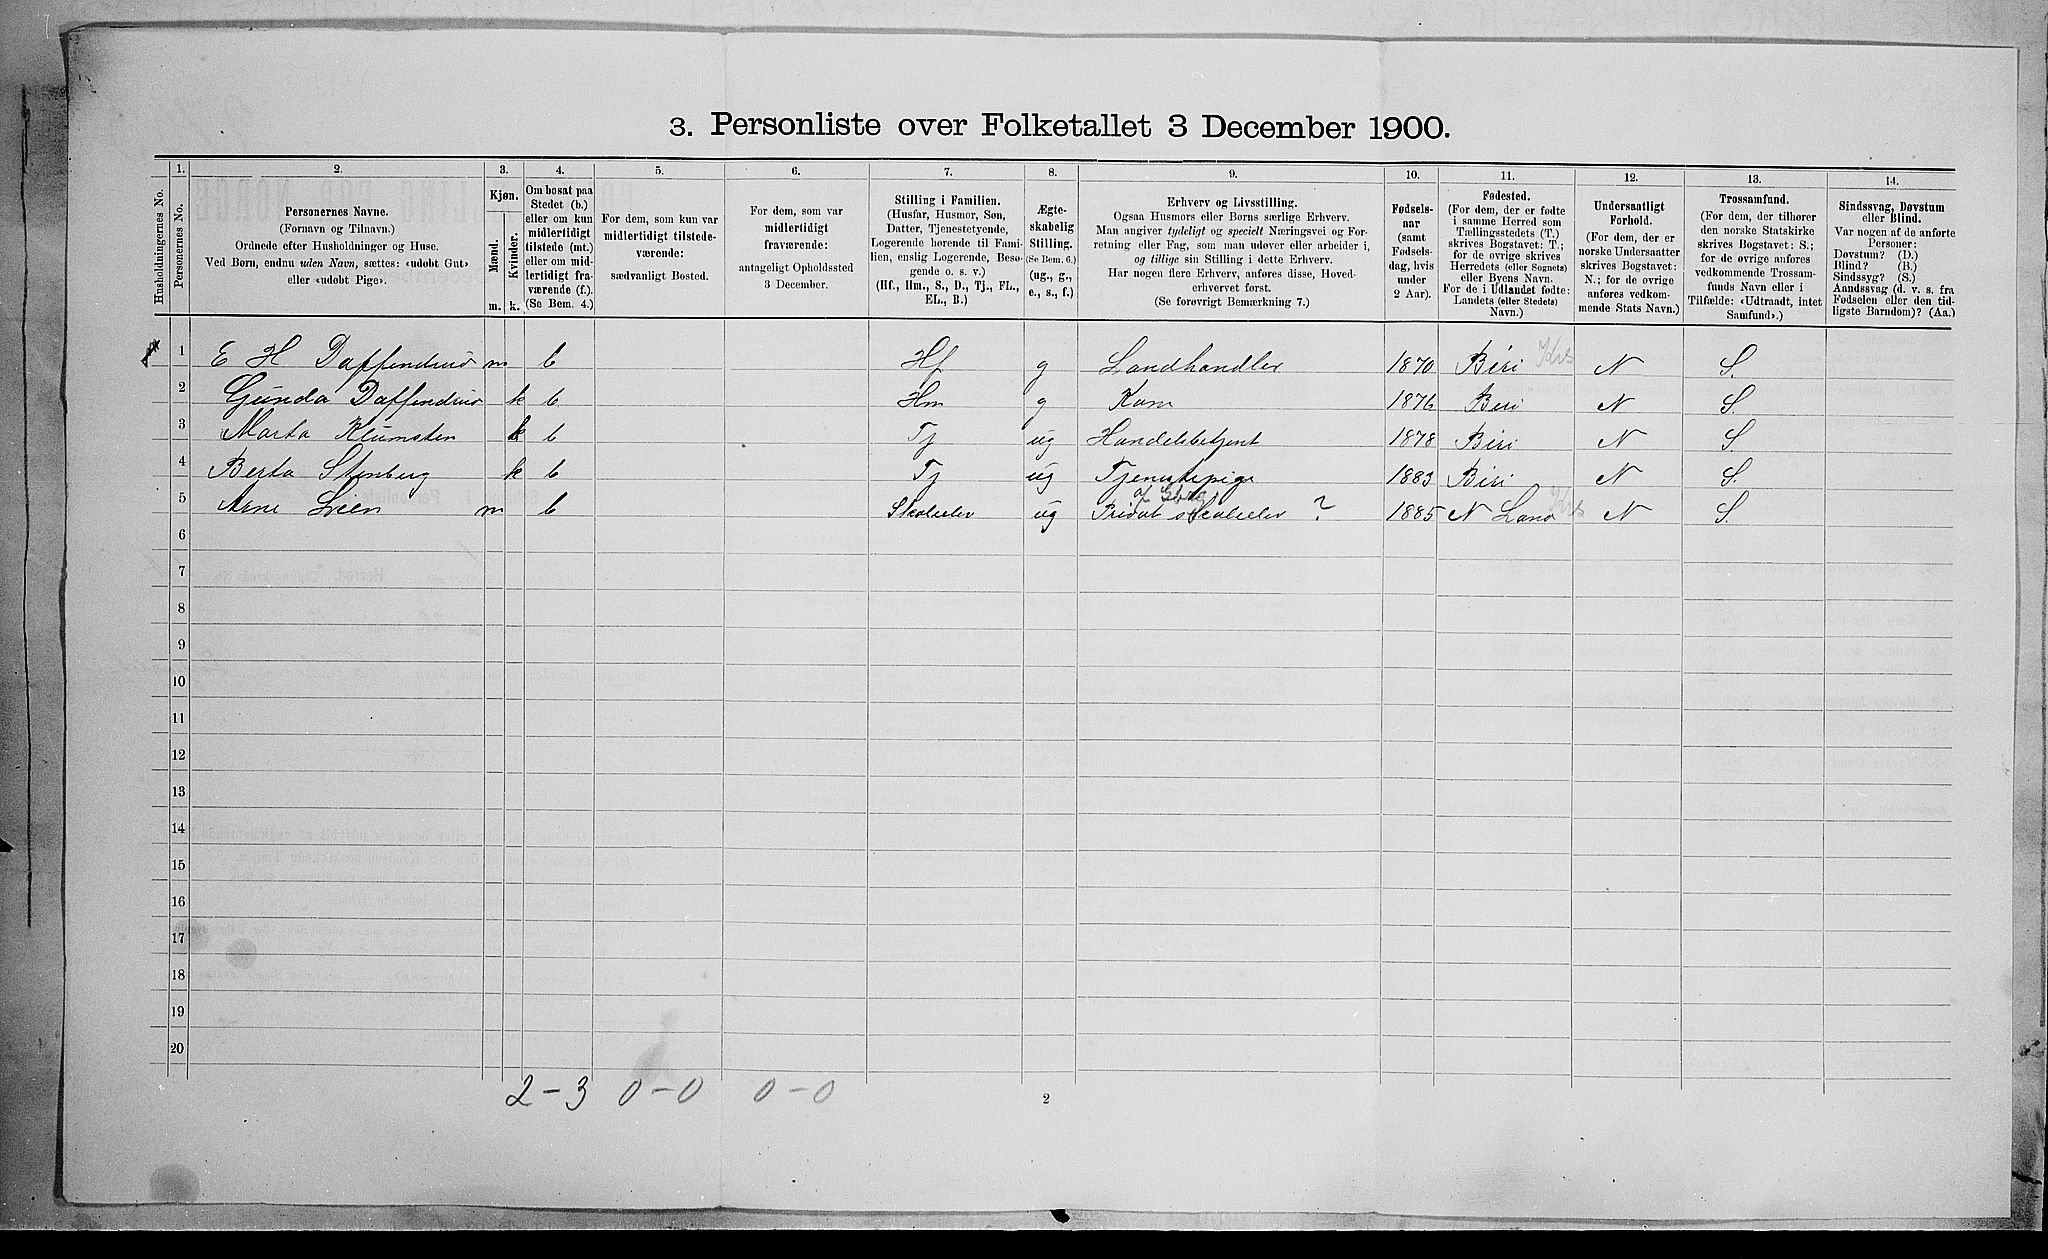 3. Personliste over Folketallet 3 December 1900.
1. 2. 3. 4. 5. 6. 7. 8. 9. 10. 11. 12. 13. 14.
Husholdningernes No.
Personernes No.
Personernes Navne.
(Fornavn og Tilnavn.)
Ordnede efter Husholdninger og Huse.
Ved Børn, endnu uden Navn, sættes: «udøbt Gut»
eller «udøbt Pige».
Kjøn.
Mænd.
Kvinder.
m. k.
Om bosat paa
Stedet (b.)
eller om kun
midlertidigt
tilstede (mt.)
eller om mid-
lertidigt fra-
værende (f.).
(Se Bem. 4.)
For dem, som kun var
midlertidigt tilstede-
værende:
sædvanligt Bosted.
For dem, som var
midlertidigt
fraværende:
antageligt Opholdssted
3 December.
Stilling i Familien.
(Husfar, Husmor, Søn,
Datter, Tjenestetyende,
Logerende hørende til Fami-
lien, enslig Logerende, Besø-
gende o. s. v.)
(Hf., Hm., S., D., Tj., FL.,
EL., B.)
Ægte-
skabelig
Stilling.
(Se Bem. 6.)
(ug., g.,
e., s., f.)
Erhverv og Livsstilling.
Ogsaa Husmors eller Børns særlige Erhverv.
Man angiver tydeligt og specielt Næringsvei og For-
retning eller Fag, som man udøver eller arbeider i,
og tillige sin Stilling i dette Erhverv.
Har nogen flere Erhverv, anføres disse, Hoved-
erhvervet først.
(Se forøvrigt Bemærkning 7.)
Fødsels-
aar
(samt
Fødsels-
dag, hvis
under
2 Aar).
Fødested.
(For dem, der er fødte
i samme Herred som
Tællingsstedets (T.)
skrives Bogstavet: T.;
for de øvrige skrives
Herredets (eller Sognets)
eller Byens Navn.
For de i Udlandet fødte:
Landets (eller Stedets)
Navn.)
Undersaatligt
Forhold.
(For dem, der er
norske Undersaatter
skrives Bogstavet:
N.; for de øvrige
anføres vedkom-
mende Stats Navn.)
Trossamfund.
(For dem, der tilhører
den norske Statskirke
skrives Bogstavet: S.;
for de øvrige anføres
vedkommende Trossam-
funds Navn eller i
Tilfælde: «Udtraadt, intet
Samfund».)
Sindssvag, Døvstum
eller Blind.
Var nogen af de anførte
Personer:
Døvstum? (D.)
Blind? (B.)
Sindssyg? (S.)
Aandssvag (d. v. s. fra
Fødselen eller den tid-
ligste Barndom)? (Aa.)
1 E H Daffendrud m b Hf g Landhandler 1870 Biri Krs N S.
2 Gunda Daffendrud k b Hm g Kone 1876 Biri N S.
3 Marta Klumsten k b Tj ug Handelsbetjent 1878 Biri N S.
4 Berta Stenberg k b Tj ug Tjenestepige 1883 Biri N S.
5 Arne Lien m b Skoleelev ug Privat Skoleelev ? 1885 N Land Krs N S.
6
7
8
9
10
11
12
13
14
15
16
17
18
19
20
2-3 0-0 0-0
2